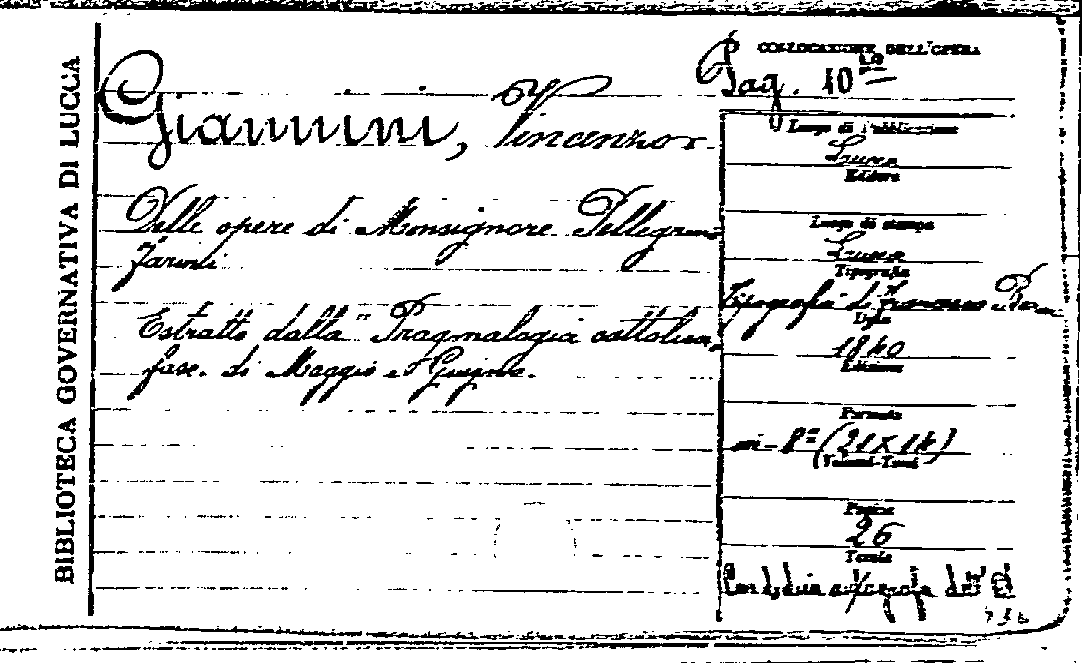 BIBLIOTECA GOVERNATIVA DI LUCCA
COLLOCAZIONE DELL'OPERA
Giannini, Vincenzo
Delle opere di Monsignore Pellegrino
Farini
Estratto dalla "Pragmalogia cattolica,
fasc. di Maggio e Giugno.
Luogo di Pubblicazione
Lucca
Editore
Luogo di stampa
Lucca
Tipografia
Tipografia di Francesco
Data
1840
Edizione
Formato
in-8º (21x14)
Volumi-Tomi
Pagine
26